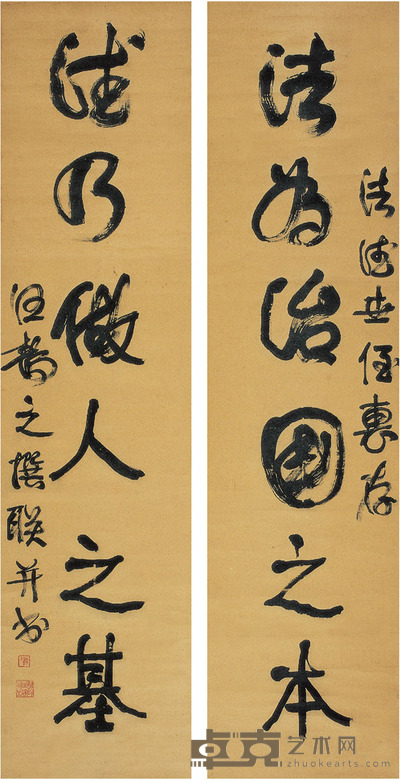 法德世侄惠存
法为治国之本
德乃做人之基
汪寿之撰联并书
卓克艺术网
zhuokearts.com